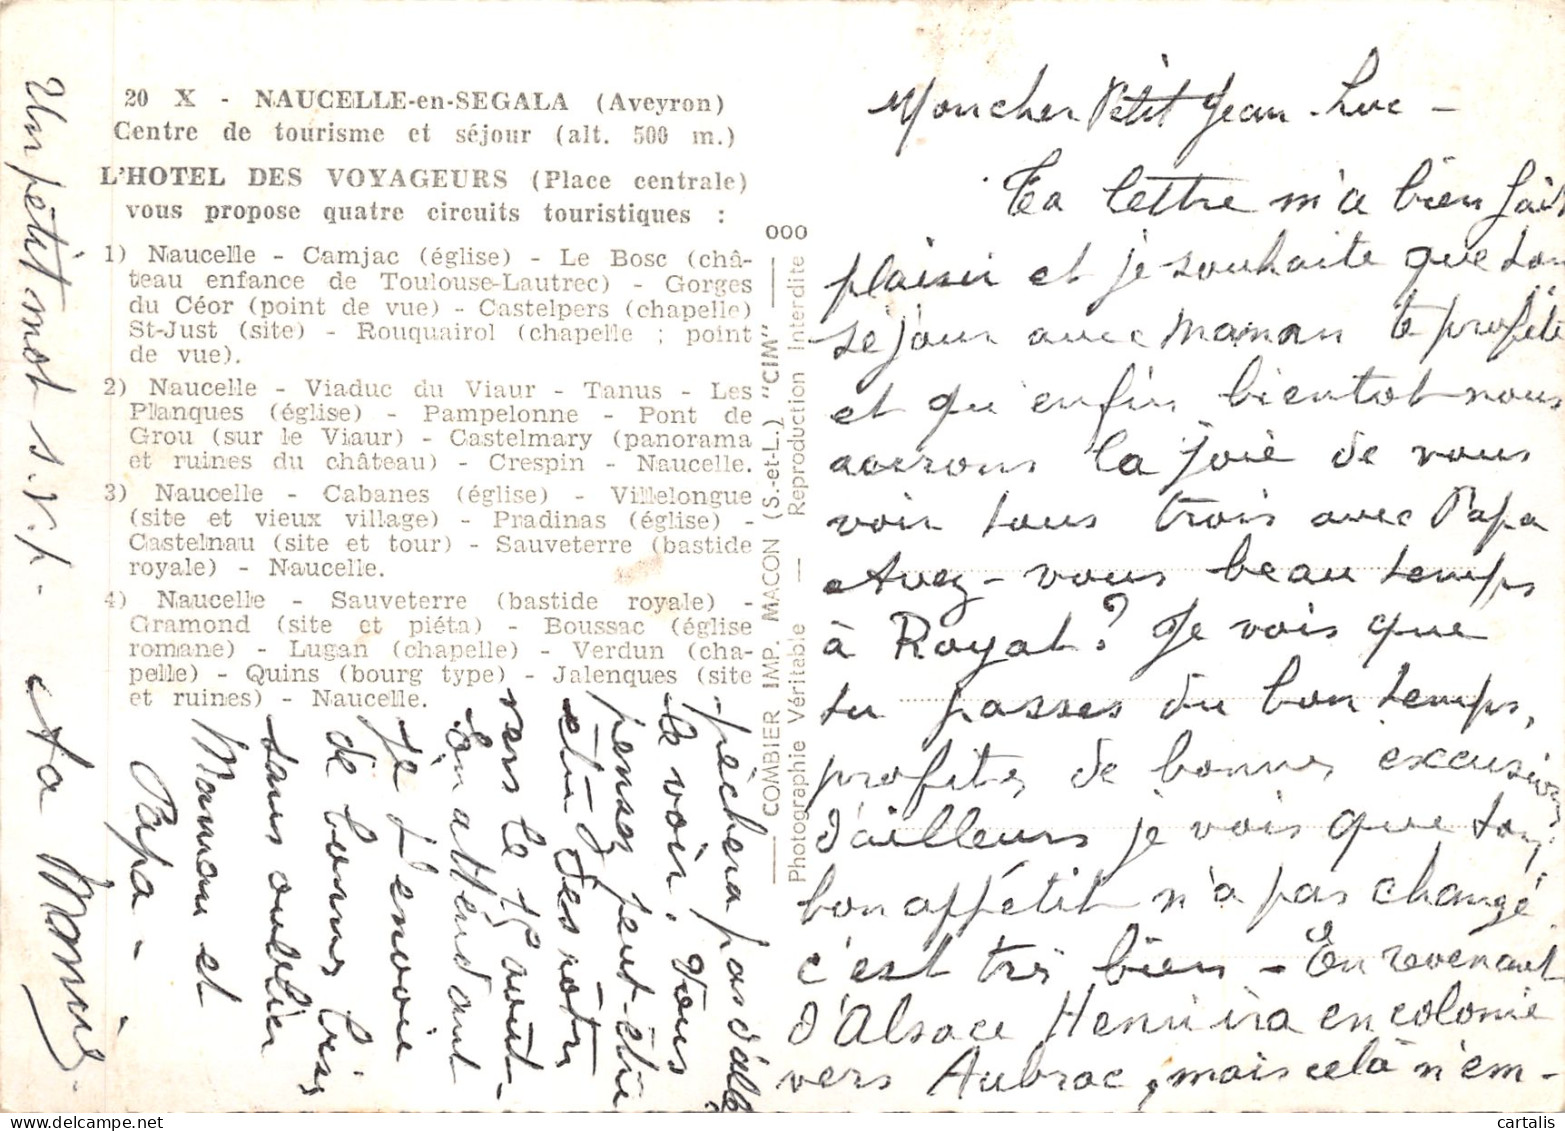 20 X - NAUCELLE-en-SEGALA (Aveyron)
Centre de tourisme et séjour (alt. 500 m.)
L'HOTEL DES VOYAGEURS (Place centrale)
vous propose quatre circuits touristiques :
1) Naucelle - Camjac (église) - Le Bosc (châ-
teau enfance de Toulouse-Lautrec) - Gorges
du Céor (point de vue) - Castelpers (chapelle)
St-Just (site) - Rouquairol (chapelle ; point
de vue).
2) Naucelle - Viaduc du Viaur - Tanus - Les
Planques (église) - Pampelonne - Pont de
Grou (sur le Viaur) - Castelmary (panorama
et ruines du château) - Crespin - Naucelle.
3) Naucelle - Cabanes (église) - Villelongue
(site et vieux village) - Pradinas (église) -
Castelnau (site et tour) - Sauveterre (bastide
royale) - Naucelle.
4) Naucelle - Sauveterre (bastide royale) -
Gramond (site et piéta) - Boussac (église
romane) - Lugan (chapelle) - Verdun (cha-
pelle) - Quins (bourg type) - Jalenques (site
et ruines) - Naucelle.
000
COMBIER IMP. MACON (S.-et-L.) "CIM"
Photographie Véritable — Reproduction Interdite
Mon cher Petit Jean-Luc -
Ta lettre m'a bien fait
plaisir et je souhaite que ton
séjour avec Maman te profite
et qu'enfin bientot nous
aurons la joie de vous
voir tous trois avec Papa
Avez-vous beau temps
à Royat? Je vois que
tu passes du bon temps,
profites de bonnes excursions
d'ailleurs je vois que ton
bon appétit n'a pas changé
c'est très bien - En revenant
d'Alsace Henri ira en colonie
vers Aubrac, mais celà n'em-
-pêchera pas d'aller
le voir. Vous
pensez peut-être
venir
vers le 15 août -
En attendant
je t'envoie
de bons bises
sans oublier
Maman et
Papa -
Un petit mot s.v.p. - ta Mamie